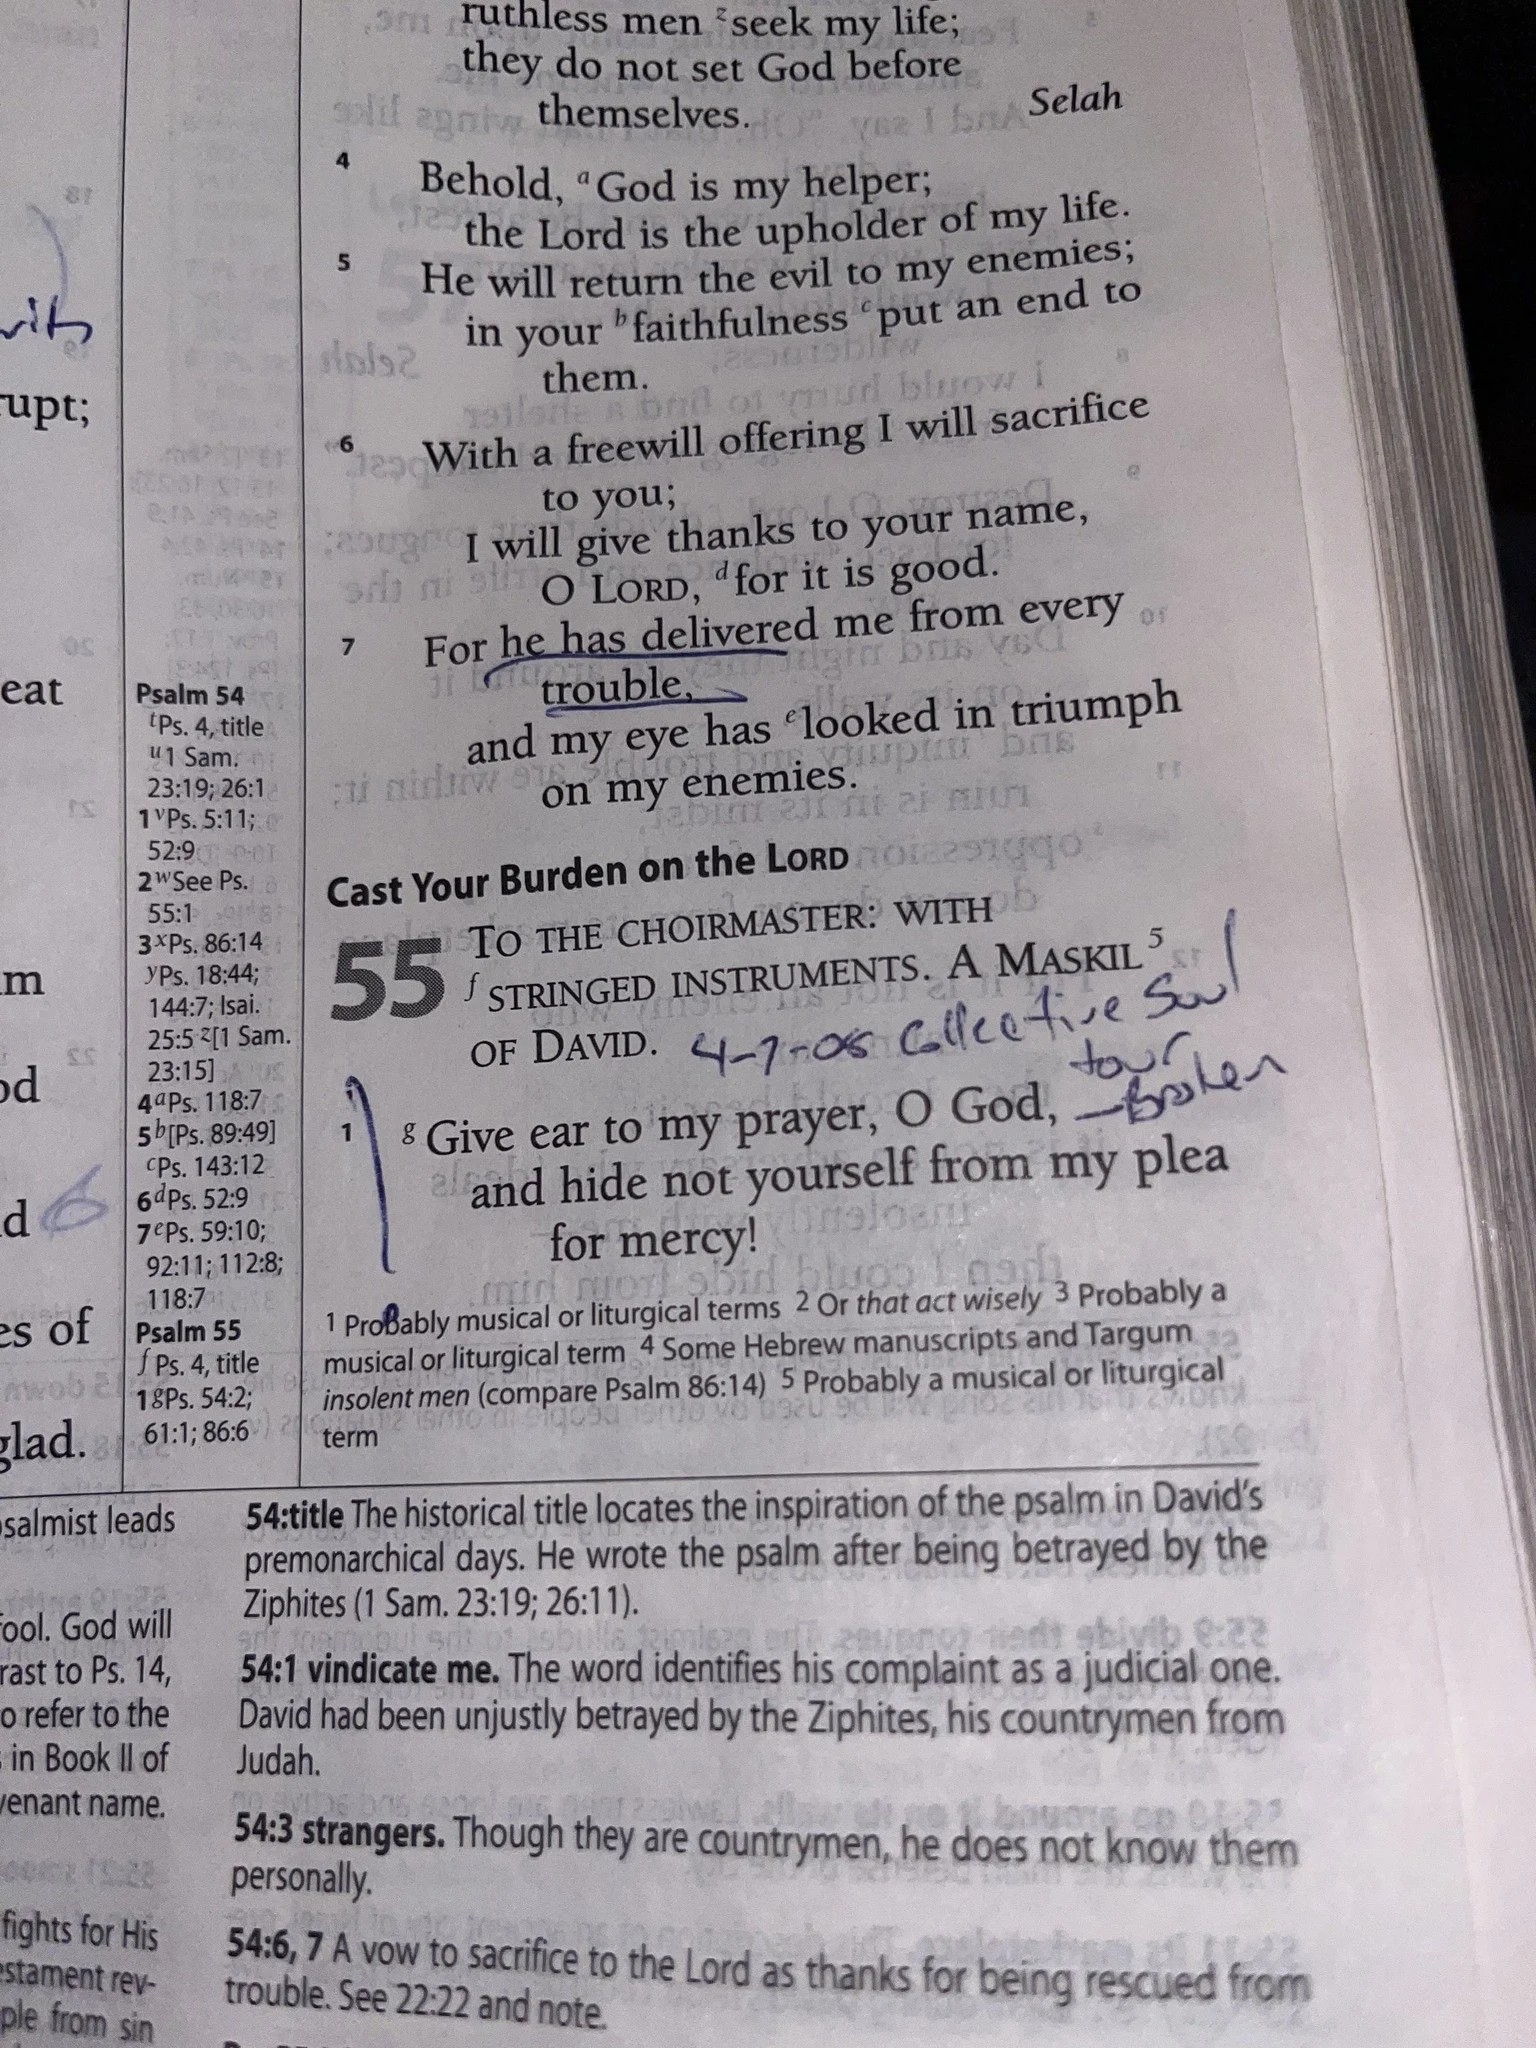 ruthless men z seek my life;
they do not set God before
themselves. Selah
4 Behold, a God is my helper;
the Lord is the upholder of my life.
5 He will return the evil to my enemies;
in your b faithfulness c put an end to
them.
6 With a freewill offering I will sacrifice
to you;
I will give thanks to your name,
O LORD, d for it is good.
7 For he has delivered me from every
trouble,
and my eye has e looked in triumph
on my enemies.
Cast Your Burden on the LORD
55 TO THE CHOIRMASTER: WITH
f STRINGED INSTRUMENTS. A MASKIL 5
OF DAVID. 4-7-08 Collective Soul
tour
1 g Give ear to my prayer, O God, - Broken
and hide not yourself from my plea
for mercy!
1 Probably musical or liturgical terms 2 Or that act wisely 3 Probably a
musical or liturgical term 4 Some Hebrew manuscripts and Targum
insolent men (compare Psalm 86:14) 5 Probably a musical or liturgical
term
Psalm 54
t Ps. 4, title
u 1 Sam.
23:19; 26:1
1 v Ps. 5:11;
52:9
2 w See Ps.
55:1
3 x Ps. 86:14
y Ps. 18:44;
144:7; Isai.
25:5 z [1 Sam.
23:15]
4 a Ps. 118:7
5 b [Ps. 89:49]
c Ps. 143:12
6 d Ps. 52:9
7 e Ps. 59:10;
92:11; 112:8;
118:7
Psalm 55
f Ps. 4, title
1 g Ps. 54:2;
61:1; 86:6
rupt;
eat
es of
glad.
psalmist leads
fool. God will
rast to Ps. 14,
o refer to the
in Book II of
venant name.
fights for His
estament rev-
ple from sin
54:title The historical title locates the inspiration of the psalm in David's
premonarchical days. He wrote the psalm after being betrayed by the
Ziphites (1 Sam. 23:19; 26:11).
54:1 vindicate me. The word identifies his complaint as a judicial one.
David had been unjustly betrayed by the Ziphites, his countrymen from
Judah.
54:3 strangers. Though they are countrymen, he does not know them
personally.
54:6, 7 A vow to sacrifice to the Lord as thanks for being rescued from
trouble. See 22:22 and note.